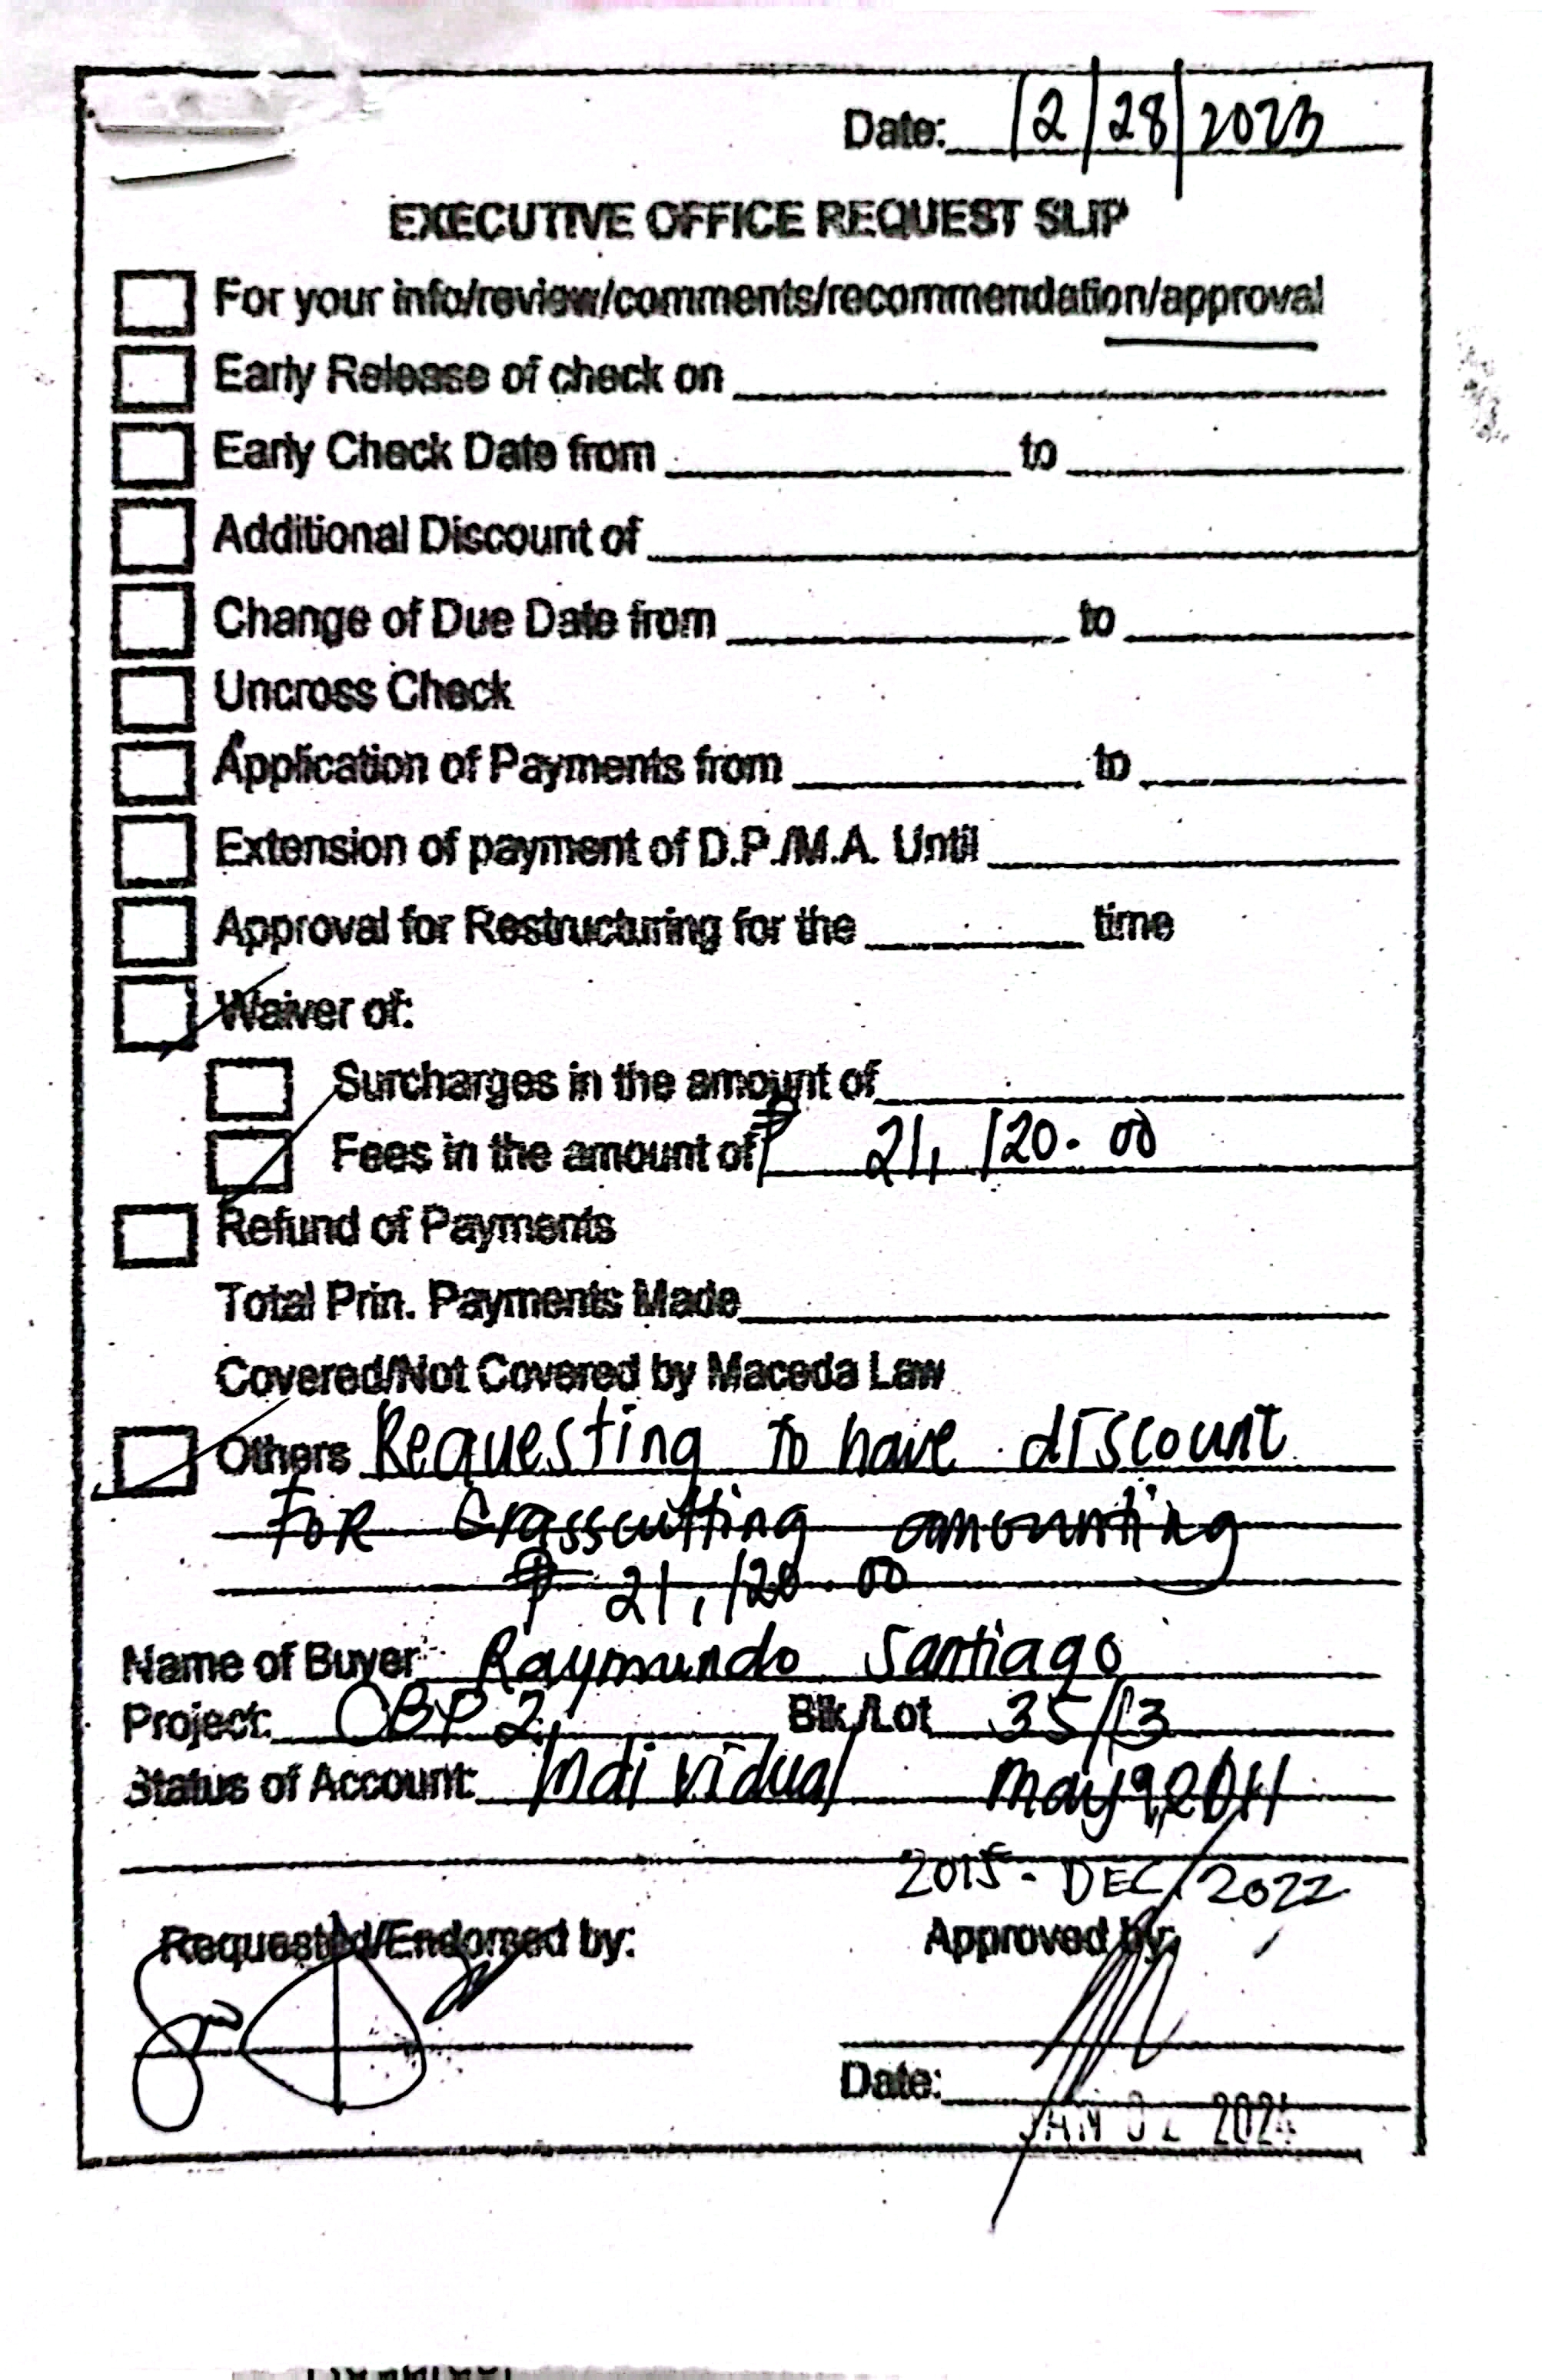 Date: 12/28/2023
EXECUTIVE OFFICE REQUEST SLIP
For your info/review/comments/recommendation/approval
Early Release of check on
Early Check Date from to
Additional Discount of
Change of Due Date from to
Uncross Check
Application of Payments from to
Extension of payment of D.P./M.A. Until
Approval for Restructuring for the time
Waiver of:
Surcharges in the amount of
Fees in the amount of ₱ 21,120.00
Refund of Payments
Total Prin. Payments Made
Covered/Not Covered by Maceda Law
Others Requesting to have discount
FOR Grasscutting amounting
₱ 21,120.00
Name of Buyer Raymundo Santiago
Project: CBP 2, Blk/Lot 35/13
Status of Account: Individual May 9, 2011
2015 - DEC/2022
Requested/Endorsed by: Approved by:
Date: JAN 02 2024